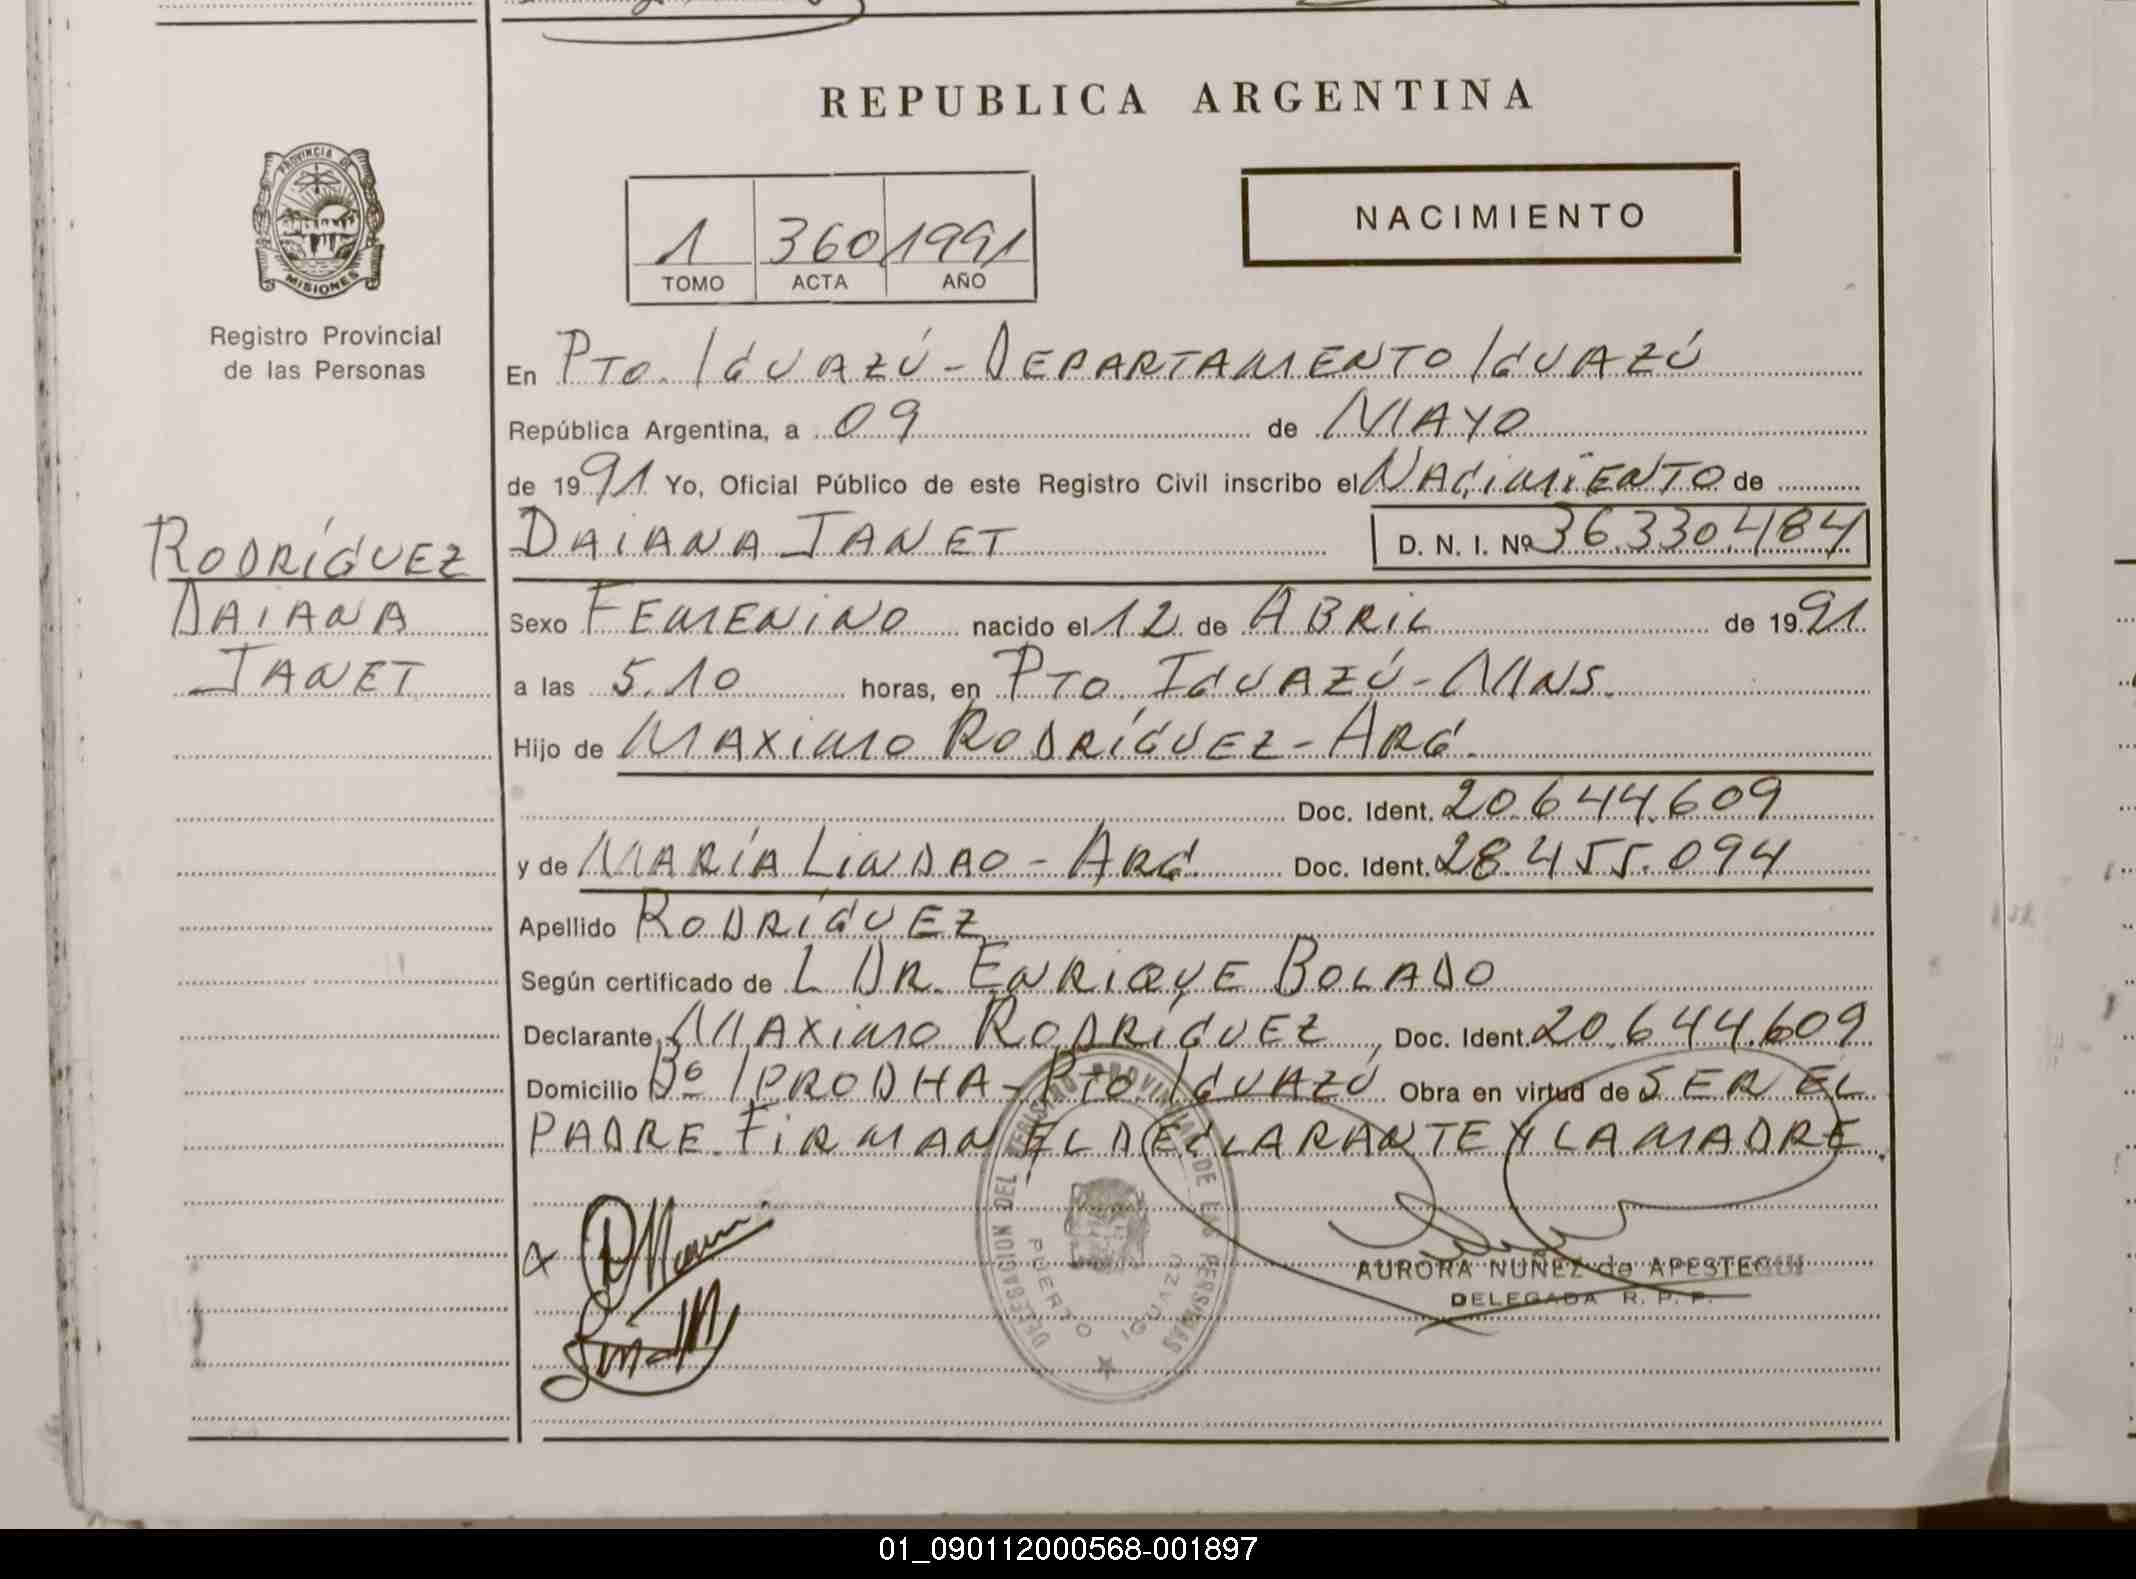 REPUBLICA ARGENTINA
PROVINCIA DE
MISIONES
Registro Provincial
de las Personas
RODRÍGUEZ
DAIANA
JANET
1 360 1991
TOMO ACTA AÑO
NACIMIENTO
En PTO. IGUAZÚ - DEPARTAMENTO IGUAZÚ
República Argentina, a 09 de MAYO
de 1991 Yo, Oficial Público de este Registro Civil inscribo el NACIMIENTO de
DAIANA JANET D. N. I. Nº 36.330.484
Sexo FEMENINO nacido el 12 de ABRIL de 1991
a las 5.10 horas, en PTO. IGUAZÚ - MNS.
Hijo de MAXIMO RODRÍGUEZ - ARG.
Doc. Ident. 20.644.609
y de MARÍA LINDAO - ARG. Doc. Ident. 28.455.094
Apellido RODRÍGUEZ
Según certificado de L DR. ENRIQUE BOLADO
Declarante MAXIMO RODRÍGUEZ, Doc. Ident. 20.644.609
Domicilio Bº IPRODHA - PTO. IGUAZÚ Obra en virtud de SER EL
PADRE. FIRMAN EL DECLARANTE Y LA MADRE.
DELEGACION DEL REGISTRO PROVINCIAL DE LAS PERSONAS
PUERTO IGUAZU
AURORA NUÑEZ de APESTEGUI
DELEGADA R. P. P.
01_090112000568-001897